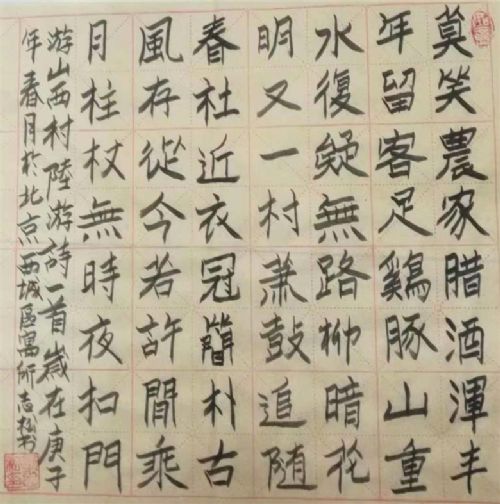 莫笑農家腊酒渾丰
年留客足鷄豚山重
水復疑無路柳暗花
明又一村蕭鼓追随
春社近衣冠簡朴古
風存從今若許閒乘
月柱杖無時夜扣門
游山西村陸游詩一首歲在庚子
年春月於北京西城區寓所志松書